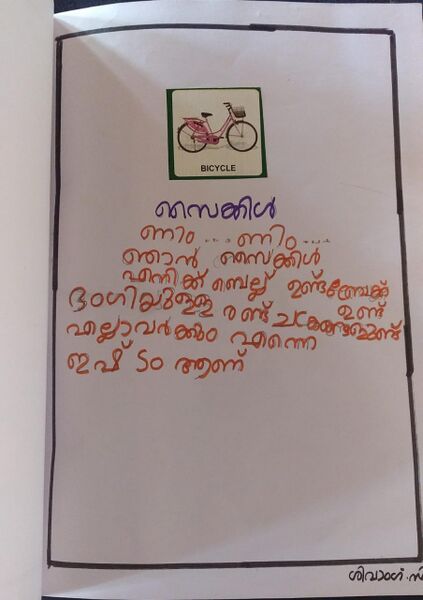 BICYCLE
സൈക്കിൾ
ണിം ... ണിം ...
ഞാൻ സൈക്കിൾ
എനിക്ക് ബെല്ല് ഉണ്ട് ബ്രേക്ക്
ഭംഗിയുള്ള രണ്ട് ചക്രങ്ങളുണ്ട് ഉണ്ട്
എല്ലാവർക്കും എന്നെ
ഇഷ്ടം ആണ്